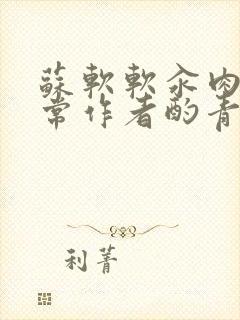 蘇軟軟汆肉
常作者酌青
利菁